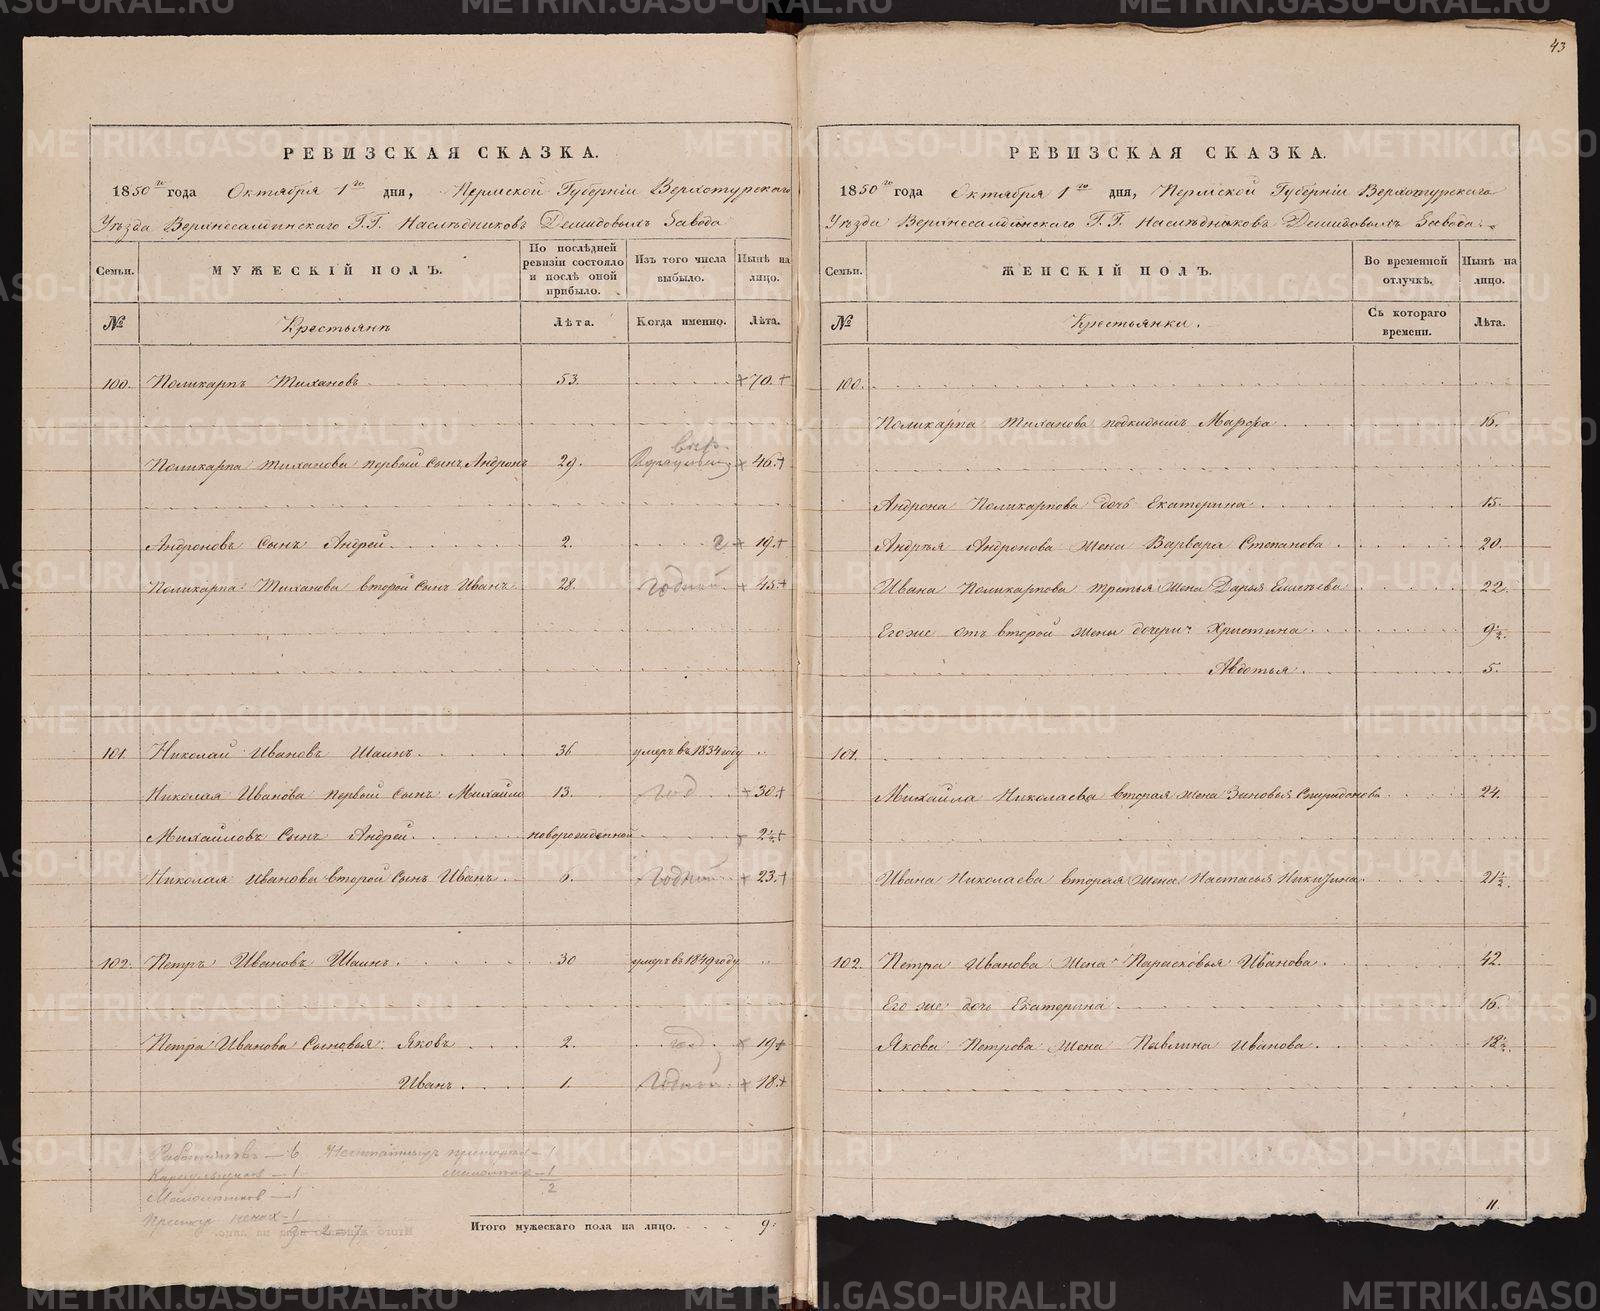 РЕВИЗСКАЯ СКАЗКА.
1850го года Октября 1го дня, Пермской Губерніи Верхотурскаго
Уѣзда Верхнесалдинскаго Г.Г. Наслѣдниковъ Демидовыхъ Завода
Семьи.
МУЖЕСКІЙ ПОЛЪ.
По послѣдней ревизіи состояло и послѣ оной прибыло.
Изъ того числа выбыло.
Нынѣ на лицо.
№
Крестьянъ
Лѣта.
Когда именно.
Лѣта.
100. Поликарпъ Тихановъ 53. 70.
Поликарпа Тиханова первый сынъ Андронъ 29. 46.
Андроновъ сынъ Андрей. 2. 19.
Поликарпа Тиханова второй сынъ Иванъ. 28. Годный 45.
101. Николай Ивановъ Шаинъ. 36 умеръ въ 1834 году
Николая Иванова первый сынъ Михайло 13. год 30.
Михайловъ сынъ Андрей. новорожденной 2½
Николая Иванова второй сынъ Иванъ. 6. Годный 23.
102. Петръ Ивановъ Шаинъ. 30 умеръ въ 1849 году.
Петра Иванова сыновья: Яковъ 2. год 19
Иванъ. 1. Годный 18.
Работниковъ — 6
Караульщиков — 1
Малолетков — 1
9 2 7
1
1
2
Итого мужескаго пола на лицо. 9.
43
РЕВИЗСКАЯ СКАЗКА.
1850го года Октября 1го дня, Пермской Губерніи Верхотурскаго
Уѣзда Верхнесалдинскаго Г.Г. Наслѣдниковъ Демидовыхъ Завода.
Семьи.
ЖЕНСКІЙ ПОЛЪ.
Во временной отлучкѣ.
Нынѣ на лицо.
№
Крестьянки.
Съ котораго времени.
Лѣта.
100.
Поликарпа Тиханова подкидышъ Марфа 16.
Андрона Поликарпова дочь Екатерина 15.
Андрея Андронова жена Варвара Степанова 20.
Ивана Поликарпова третья жена Дарья Елисѣева 22.
Его же отъ второй жены дочери: Христина 9½.
Авдотья 5.
101.
Михайла Николаева вторая жена Зиновья Спиридонова 24.
Ивана Николаева вторая жена Настасья Никитина 21½.
102. Петра Иванова жена Парасковья Иванова. 42.
Его же дочь Екатерина 16.
Якова Петрова жена Павлина Иванова. 18½.
11.
METRIKI.GASO-URAL.RU